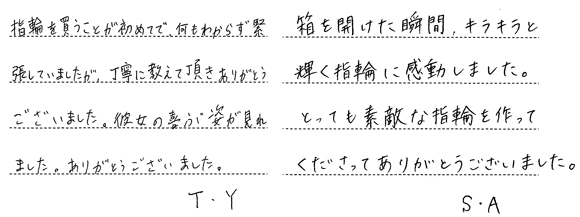 指輪を買うことが初めてで、何もわからず緊
張していましたが、丁寧に教えて頂きありがとう
ございました。彼女の喜ぶ姿が見れ
ました。ありがとうございました。
T・Y
箱を開けた瞬間、キラキラと
輝く指輪に感動しました。
とっても素敵な指輪を作って
くださってありがとうございました。
S・A